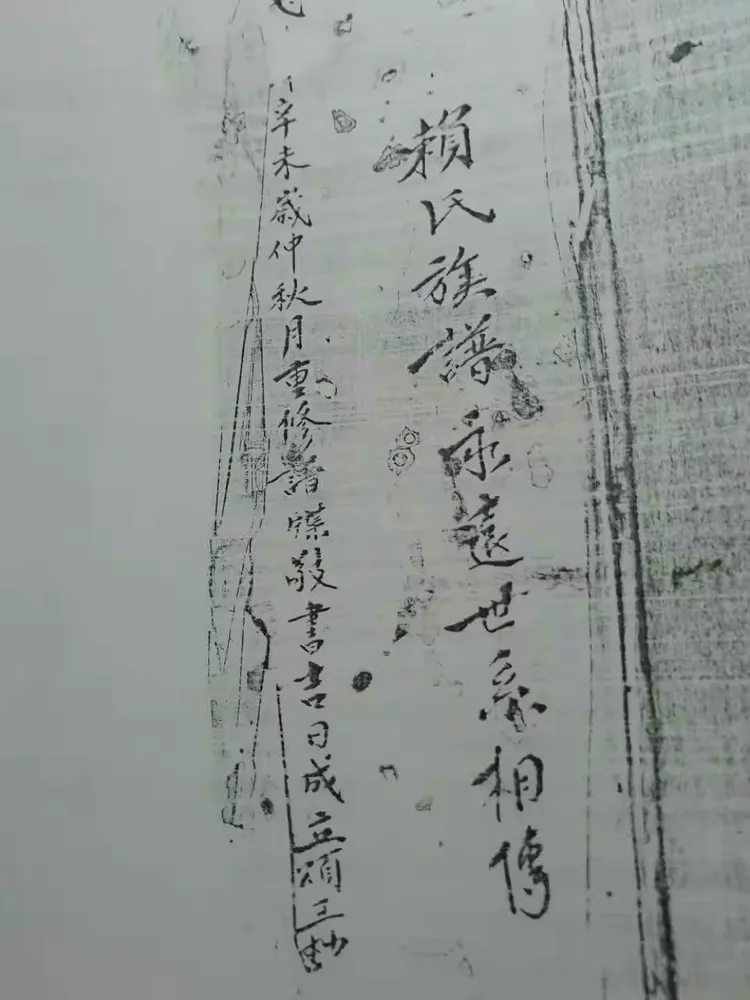 賴氏族譜永遠世系相傳
辛未歲仲秋月重修譜牒敬書吉日成立